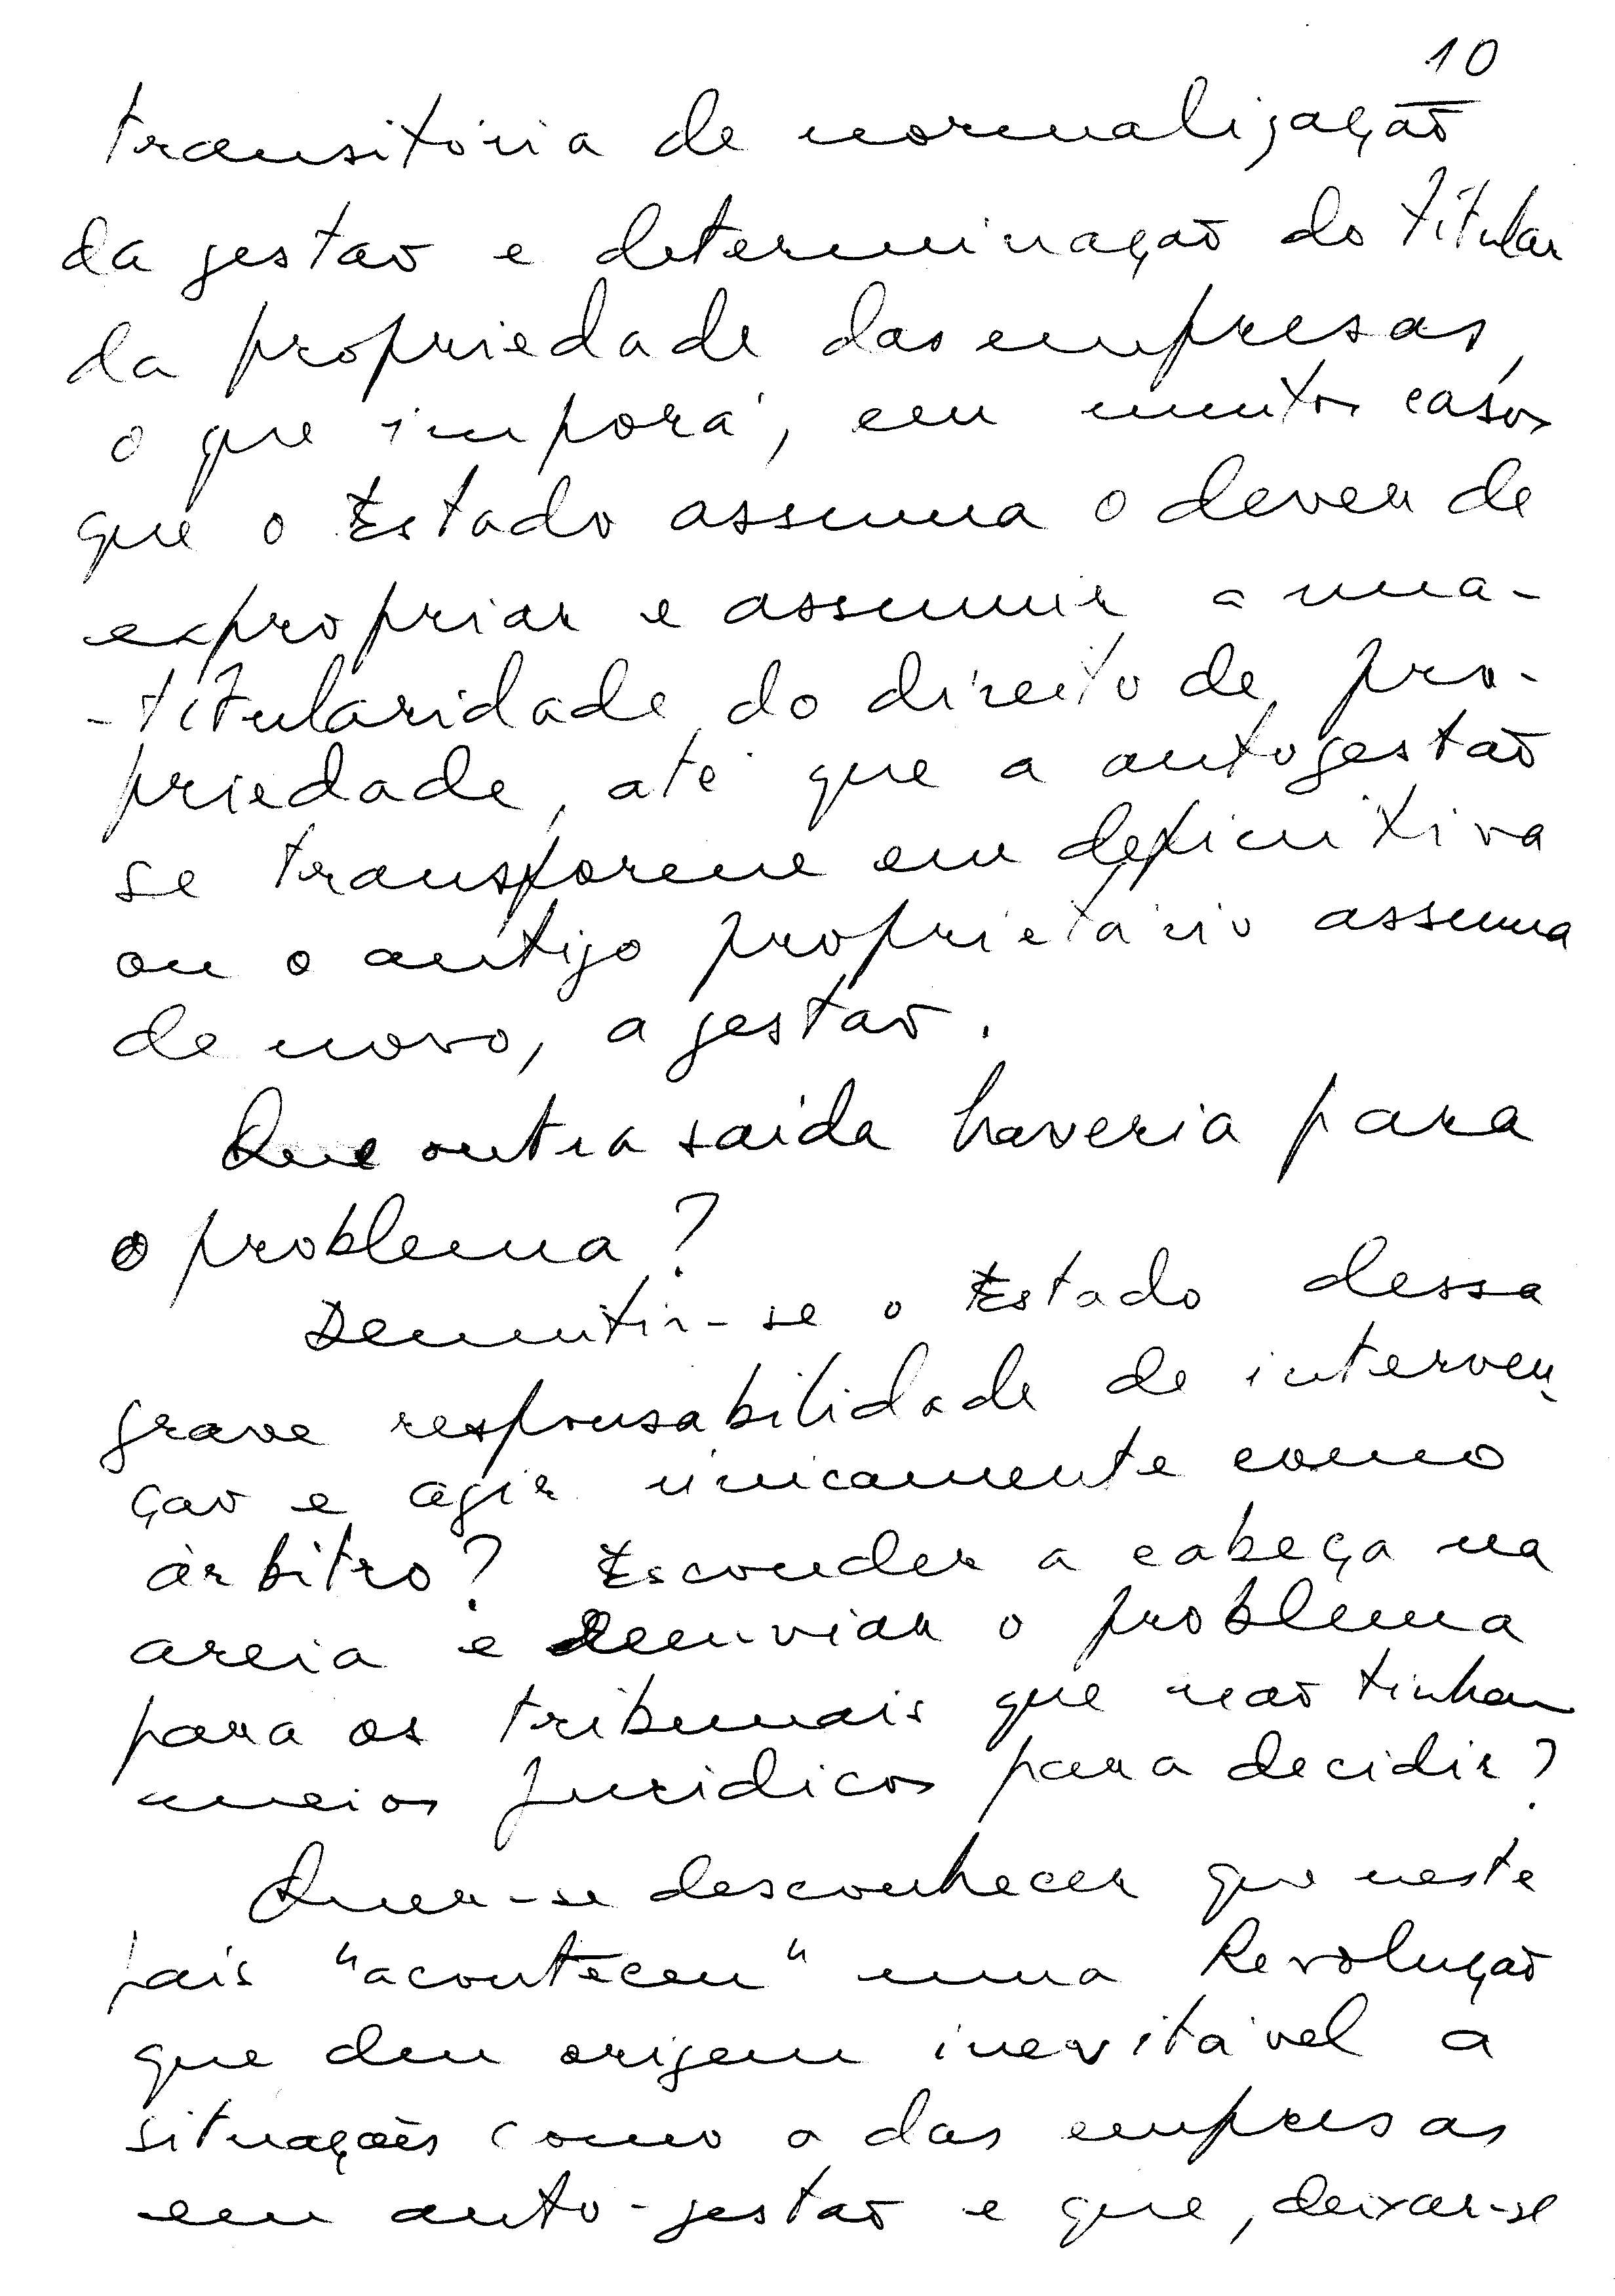 10
transitória de normalização
da gestão e determinação do titular
da propriedade das empresas,
o que imporá, em muitos casos,
que o Estado assuma o dever de
expropriar e assumir a nua-
-titularidade do direito de pro-
priedade, até que a autogestão
se transforme em definitiva
ou o antigo proprietário assuma
de novo, a gestão.
Que outra saída haveria para
o problema?
Demitir-se o Estado dessa
grave responsabilidade de interven-
ção e agir únicamente como
árbitro? Esconder a cabeça na
areia e reenviar o problema
para os tribunais que não tinham
meios jurídicos para decidir?
Quer-se desconhecer que neste
país "aconteceu" uma Revolução
que deu origem inevitável a
situações como a das empresas
em auto-gestão e que, deixar-se